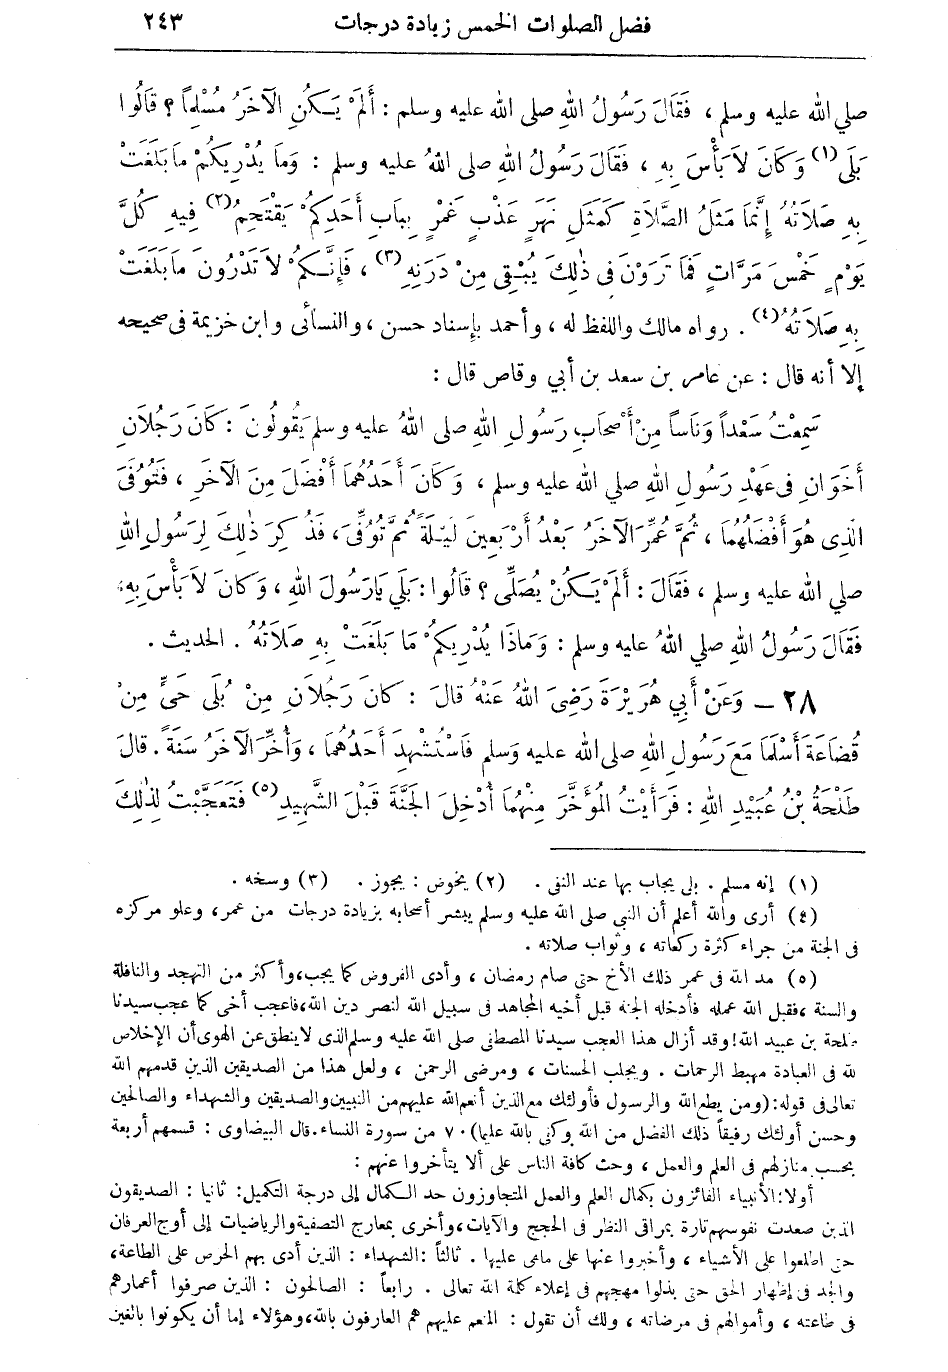 فضل الصلوات الخمس زيادة درجات ٢٤٣
صلي الله عليه وسلم ، فَقَالَ رَسُولُ اللهِ صلى الله عليه وسلم : أَلَمْ يَكُنِ الْآخَرُ مُسْلِماً ؟ قَالُوا
بَلَى (١) وَكَانَ لاَ بَأْسَ بِهِ ، فَقَالَ رَسُولُ اللهِ صلى اللهُ عليه وسلم : وَمَا يُدْرِيكُمْ مَا بَلَغَتْ
بِهِ صَلَاتُهُ إِنَّمَا مَثَلُ الصَّلَاةِ كَمَثَلِ نَهَرٍ عَذْبٍ غَمْرٍ بِبَابِ أَحَدِكُمْ يَقْتَحِمُ (٢) فِيهِ كُلَّ
يَوْمٍ خَمْسَ مَرَّاتٍ فَمَا تَرَوْنَ فِى ذٰلِكَ يُبْقِى مِنْ دَرَنِهِ (٣) ، فَإِنَّكُمْ لاَ تَدْرُونَ مَا بَلَغَتْ
بِهِ صَلاَتُهُ (٤) . رواه مالك واللفظ له ، وأحمد بإسناد حسن ، والنسائى وابن خزيمة فى صحيحه
إلا أنه قال : عن عامر بن سعد بن أبي وقاص قال :
سَمِعْتُ سَعْداً وَنَاساً مِنْ أَصْحَابِ رَسُولِ اللهِ صلى اللهُ عليه وسلم يَقُولُونَ : كَانَ رَجُلَانِ
أَخَوَانِ فِى عَهْدِ رَسُولِ اللهِ صلي الله عليه وسلم ، وَكَانَ أَحَدُهُمَا أَفْضَلَ مِنَ الْآخَرِ ، فَتُوُفِّىَ
الَّذِى هُوَ أَفْضَلُهُمَا ، ثُمَّ عُمِّرَ الْآخَرُ بَعْدُ أَرْبَعِينَ لَيْلَةً ثُمَّ تُوُفِّىَ ، فَذُكِرَ ذٰلِكَ لِرَسُولِ اللهِ
صلي الله عليه وسلم ، فَقَالَ : أَلَمْ يَكُنْ يُصَلِّى ؟ قَالُوا : بَلَي يَارَسُولَ اللهِ ، وَكَانَ لاَ بَأْسَ بِهِ ،
فَقَالَ رَسُولُ اللهِ صلي اللهُ عليه وسلم : وَمَاذَا يُدْرِيكُمْ مَا بَلَغَتْ بِهِ صَلَاتُهُ . الحديث .
٢٨ – وَعَنْ أَبِي هُرَيْرَةَ رَضِىَ اللهُ عَنْهُ قَالَ : كَانَ رَجُلَانِ مِنْ بُلَى حَيٍّ مِنْ
قُضَاعَةَ أَسْلَمَا مَعَ رَسُولِ اللهِ صلى الله عليه وَسلم فَاسْتُشْهِدَ أَحَدُهُمَا ، وَأُخِّرَ الْآخَرُ سَنَةً . قالَ
طَلْحَةُ بْنُ عُبَيْدِ اللهِ : فَرَأَيْتُ الْمُؤَخَّرَ مِنْهُمَا أُدْخِلَ الْجَنَّةَ قَبْلَ الشَّهِيدِ (٥) فَتَعَجَّبْتُ لِذٰلِكَ
(١) إنه مسلم . بلى يجاب بها عند النفى . (٢) يخوض : يجوز . (٣) وسخه .
(٤) أرى والله أعلم أن النبي صلى الله عليه وسلم يبشر أصحابه بزيادة درجات من عمر، وعلو مركزه
فى الجنة من جراء كثرة ركعاته ، وثواب صلاته .
(٥) مد الله فى عمر ذلك الأخ حتى صام رمضان ، وأدى الفروض كما يجب، وأكثر من التهجد والنافلة
والسنة ، فقبل الله عمله فأدخله الجنة قبل أخيه المجاهد فى سبيل الله لنصر دين الله، فاعجب أخى كما عجب سيدنا
طلحة بن عبيد الله! وقد أزال هذا العجب سيدنا المصطفى صلى الله عليه وسلم الذى لا ينطق عن الهوى أن الإخلاص
لله فى العبادة مهبط الرحمات . ويجلب الحسنات ، ومرضى الرحمن ، ولعل هذا من الصديقين الذين قدمهم الله
تعالى فى قوله: (ومن يطع الله والرسول فأولئك مع الذين أنعم الله عليهم من النبيين والصديقين والشهداء والصالحين
وحسن أولئك رفيقاً ذلك الفضل من الله وكفى بالله عليما) ٧٠ من سورة النساء. قال البيضاوى : قسمهم أربعة
بحسب منازلهم فى العلم والعمل ، وحث كافة الناس على ألا يتأخروا عنهم :
أولا: الأنبياء الفائزون بكمال العلم والعمل المتجاوزون حد الكمال إلى درجة التكميل: ثانيا : الصديقون
الذين صعدت نفوسهم تارة بمراقى النظر فى الحجج والآيات، وأخرى بمعارج التصفية والرياضيات إلى أوج العرفان
حتى اطلعوا على الأشياء ، وأخبروا عنها على ماهى عليها . ثالثاً : الشهداء : الذين أدى بهم الحرص على الطاعة،
والجد فى إظهار الحق حتى بذلوا مهجهم فى إعلاء كلمة الله تعالى . رابعاً : الصالحون : الذين صرفوا أعمارهم
فى طاعته ، وأموالهم فى مرضاته ، ولك أن تقول : المنعم عليهم هم العارفون بالله، وهؤلاء إما أن يكونوا بالغين